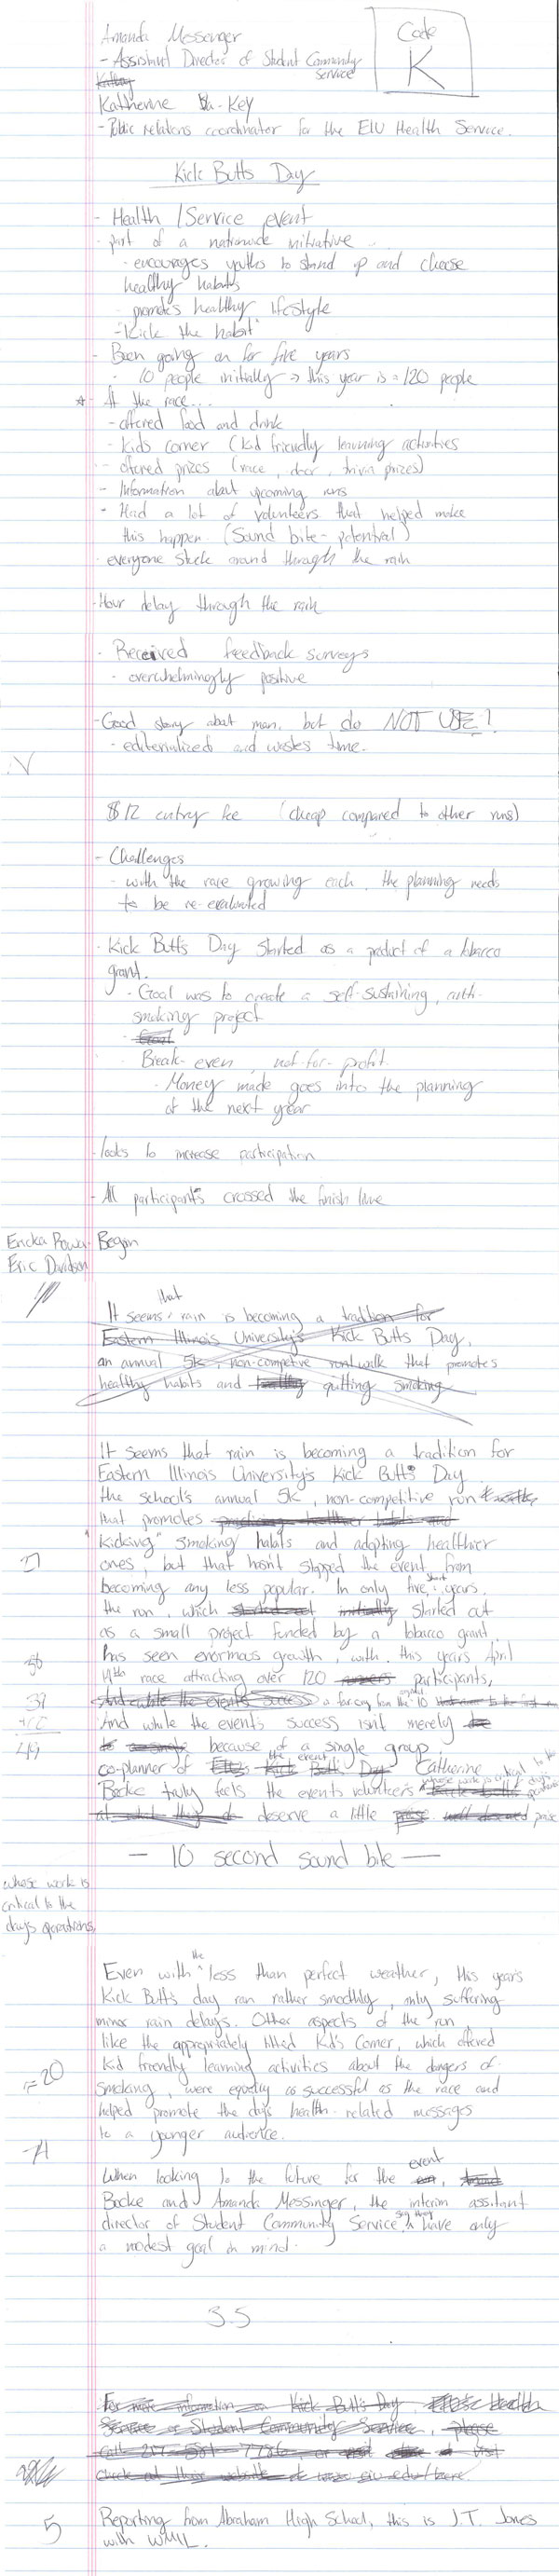 Amanda Messenger
Code
K
- Assistant Director of Student Community
Service
Katherine -Key
- Public relations coordinator for the EIU Health Service.
Kick Butts Day
- Health /Service event
- part of a nationwide initiative
- encourages youths to stand up and choose
healthy habits
- promotes healthy lifestyle
- "Kick the habit"
- Been going on for five years
- 10 people initially → this year is ≈ 120 people
* - At the race...
- offered food and drink
- Kids corner (kid friendly learning activities
- offered prizes (race, door, trivia prizes)
- Information about upcoming runs
- Had a lot of volunteers that helped make
this happen. (Sound bite - potential)
- everyone stuck around through the rain
- Hour delay through the rain
- Received feedback surveys
- overwhelmingly positive
- Good story about man, but do NOT USE!
- editorialized and wastes time.
$12 entry fee (cheap compared to other runs)
- Challenges
- with the race growing each, the planning needs
to be re-evaluated
- Kick Butt's Day started as a product of a tobacco
grant.
- Goal was to create a self-sustaining, anti-
smoking project
- Goal
Break-even, not-for-profit
- Money made goes into the planning
of the next year
- looks to increase participation
- All participants crossed the finish line
Ericka
Began
Eric Davidson
that
It seems rain is becoming a tradition for
Eastern Illinois University's Kick Butts Day,
an annual 5k, non-competive run/walk that promotes
healthy habits and quitting smoking
It seems that rain is becoming a tradition for
Eastern Illinois University's Kick Butt's Day
the school's annual 5k, non-competitive run
that promotes
"Kicking" smoking habits and adopting healthier
ones, but that hasn't stopped the event from
becoming any less popular. In only five short years,
the run, which started out initially started out
as a small project funded by a tobacco grant
has seen enormous growth, with this years April
14th race attracting over 120 participants,
And while the event's success a far cry from the original 10
37
And while the event's success isn't merely
49
because of a single group,
co-planner of the event Catherine
Bocke truly feels the events volunteers whose work is critical to the day's operations
deserve a little praise
— 10 second sound bite —
whose work is
critical to the
days operations,
Even with the less than perfect weather, this year's
Kick Butt's day ran rather smoothly, only suffering
minor rain delays. Other aspects of the run,
like the appropriately titled Kid's Corner, which offered
Kid friendly learning activities about the dangers of
≈20
smoking, were equally as successful as the race and
helped promote the day's health-related messages
to a younger audience.
event
When looking to the future for the
Bocke and Amanda Messinger, the interim assitant
director of Student Community Service say they have only
a modest goal in mind.
35
For more information on Kick Butt's Day, Health
Service or Student Community Service, please
call 217-581-7786, or visit
check out their website at www.eiu.edu/
5
Reporting from Abraham High School, this is J.T. Jones
with WMIL.